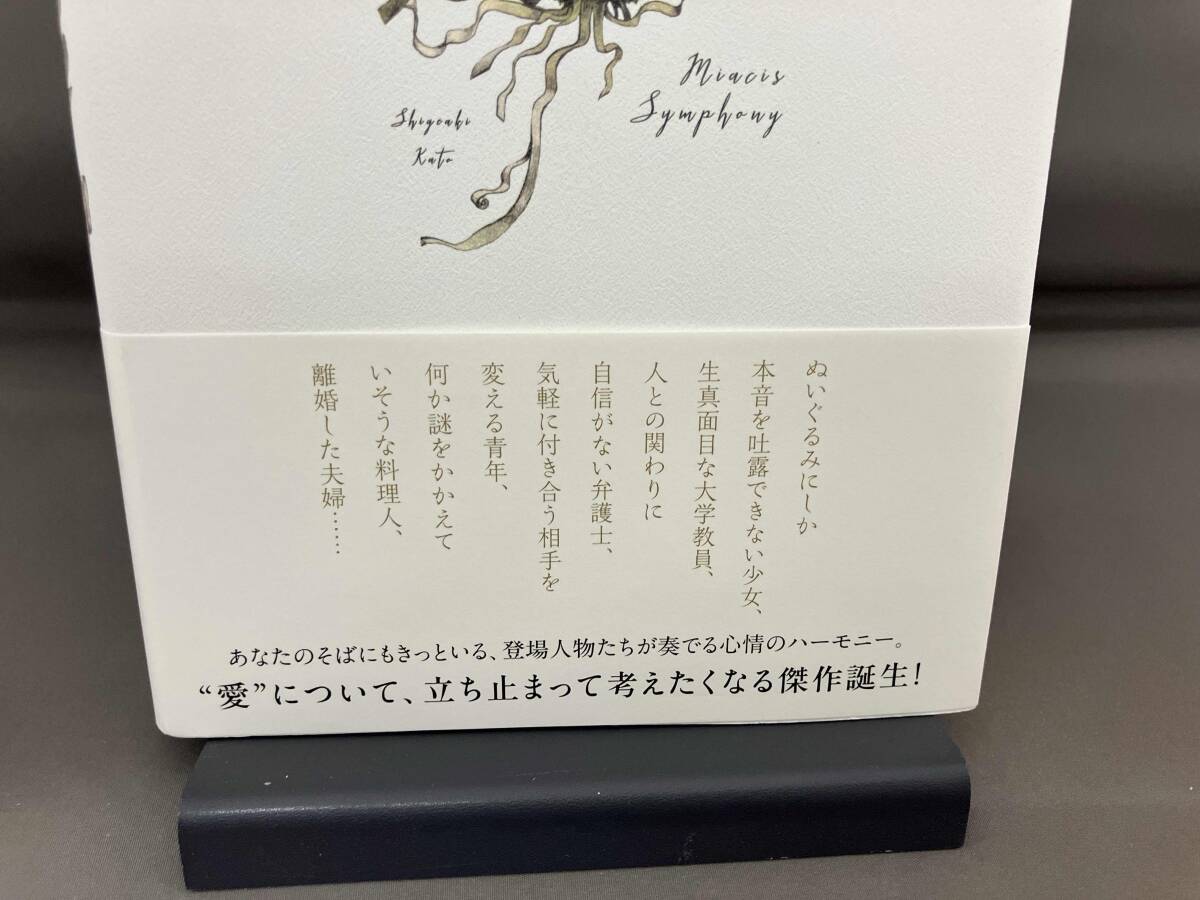 Miacis
Symphony
Shigeaki
Kato
ぬいぐるみにしか
本音を吐露できない少女、
生真面目な大学教員、
人との関わりに
自信がない弁護士、
気軽に付き合う相手を
変える青年、
何か謎をかかえて
いそうな料理人、
離婚した夫婦……
あなたのそばにもきっといる、登場人物たちが奏でる心情のハーモニー。
“愛”について、立ち止まって考えたくなる傑作誕生!